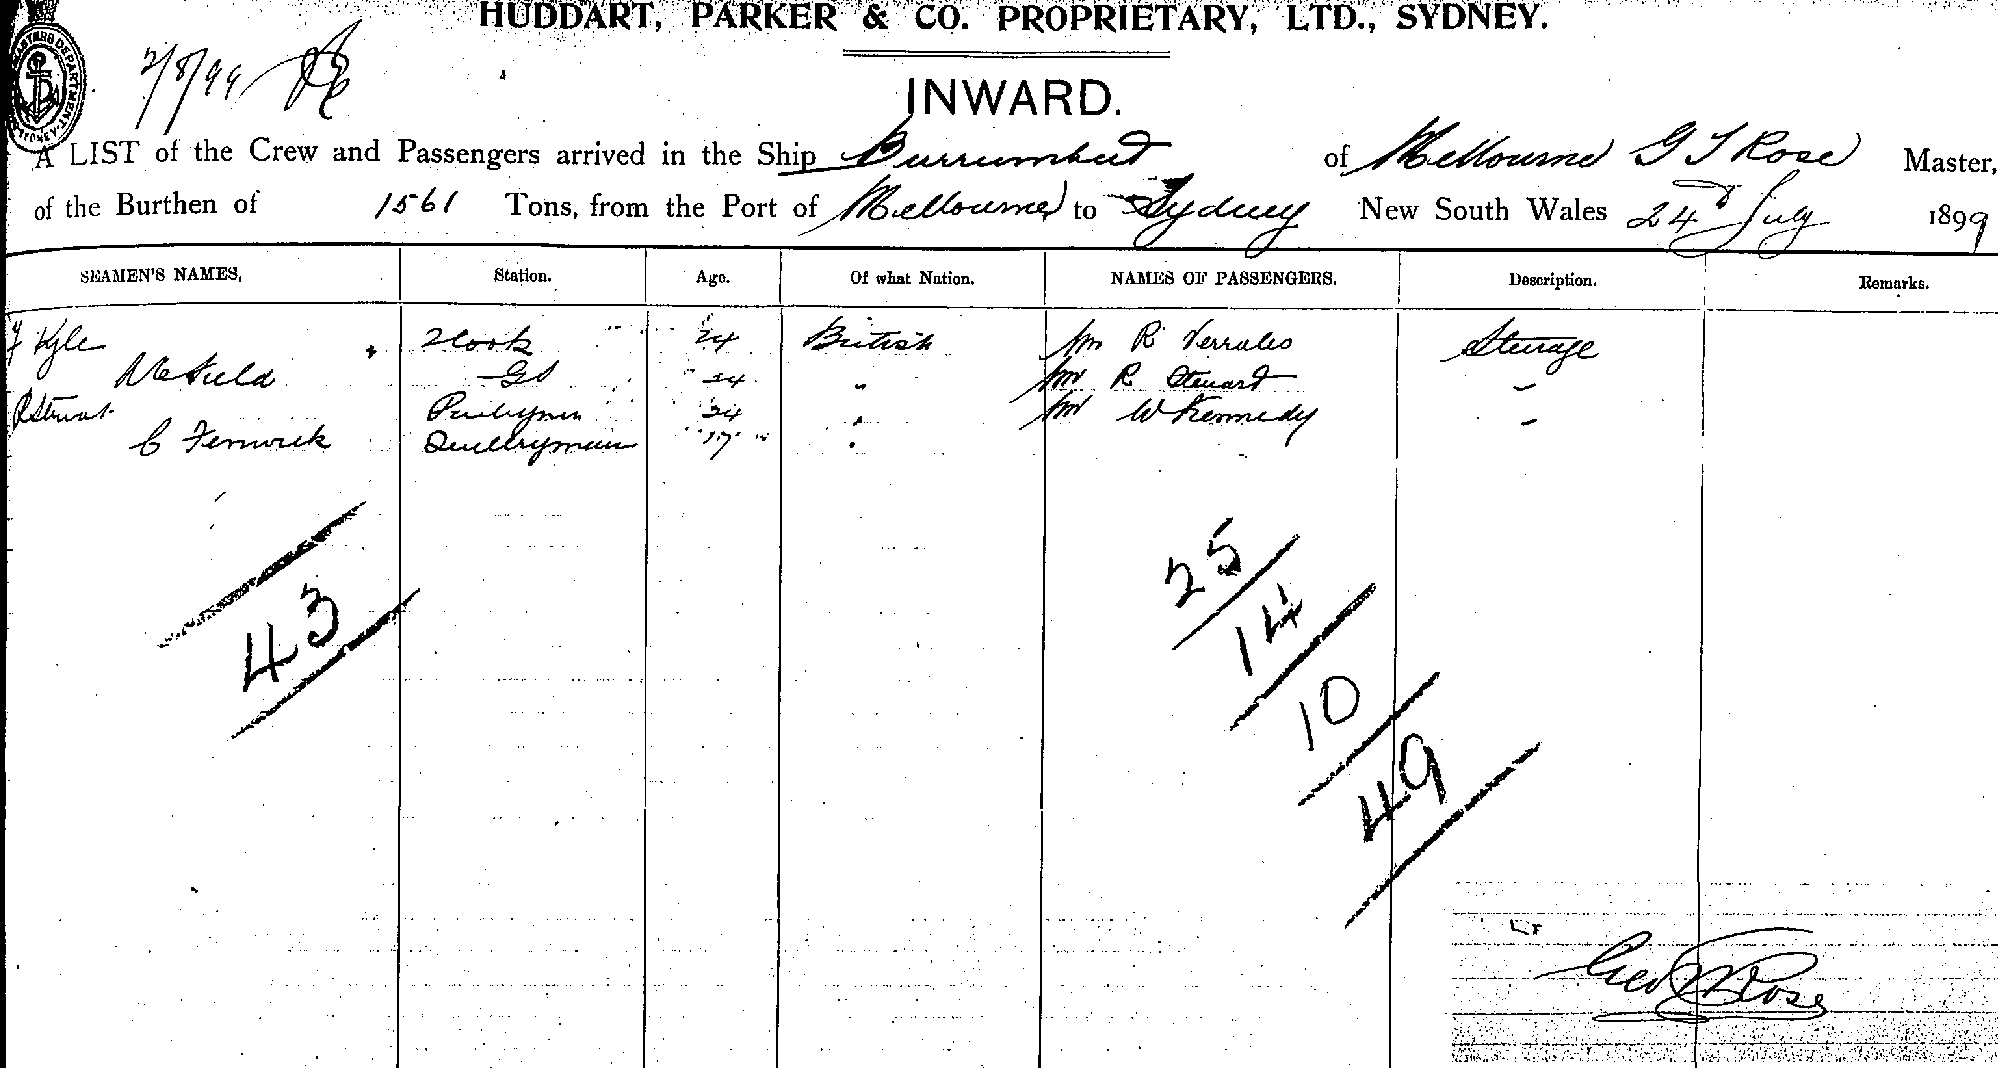 HUDDART, PARKER & CO. PROPRIETARY, LTD., SYDNEY.
2/8/99
INWARD.
A LIST of the Crew and Passengers arrived in the Ship Burrumbeet of Melbourne G T Rose Master,
of the Burthen of 1561 Tons, from the Port of Melbourne to Sydney New South Wales 24th July 1899
SEAMEN'S NAMES, Station. Age. Of what Nation. NAMES OF PASSENGERS. Description. Remarks.
J Kyle 2 Cook 24 British Mr R Verrales Steerage
Field 24 " Mr R Stewart "
R Stewart Pantryman 24 " Mr W Kennedy "
C Fenwick Scullryman 17 "
43
25
14
10
49
Geo Rose